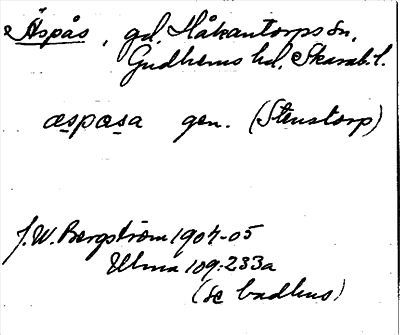 Äspås, gd, Håkantorps sn,
Gudhems hd, Skarab. l.
æspasa gen. (Stenstorp)
J. W. Bergström 1904-05
Ulma 109:233a
(se badhus)